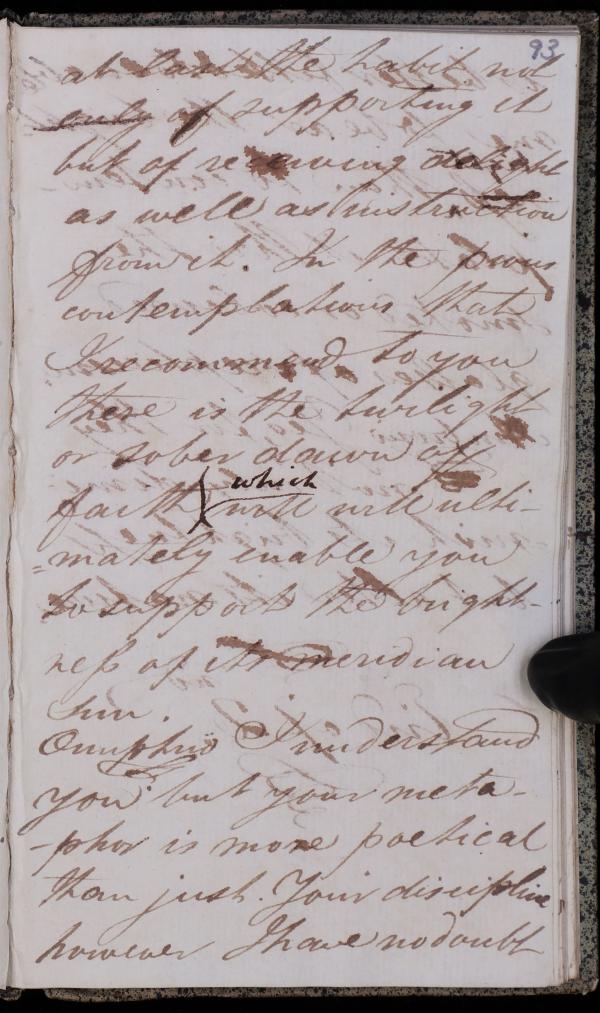 93
at last the habit not
only of supporting it
but of receiving delight
as well as instruction
from it. In the pious
contemplations that
I recommend to you
there is the twilight
or sober dawn of
faith which will ulti-
=mately enable you
to support the bright-
ness of its meridian
sun.
Onuphrio I understand
you but your meta-
-phor is more poetical
than just. Your discipline
however I have no doubt